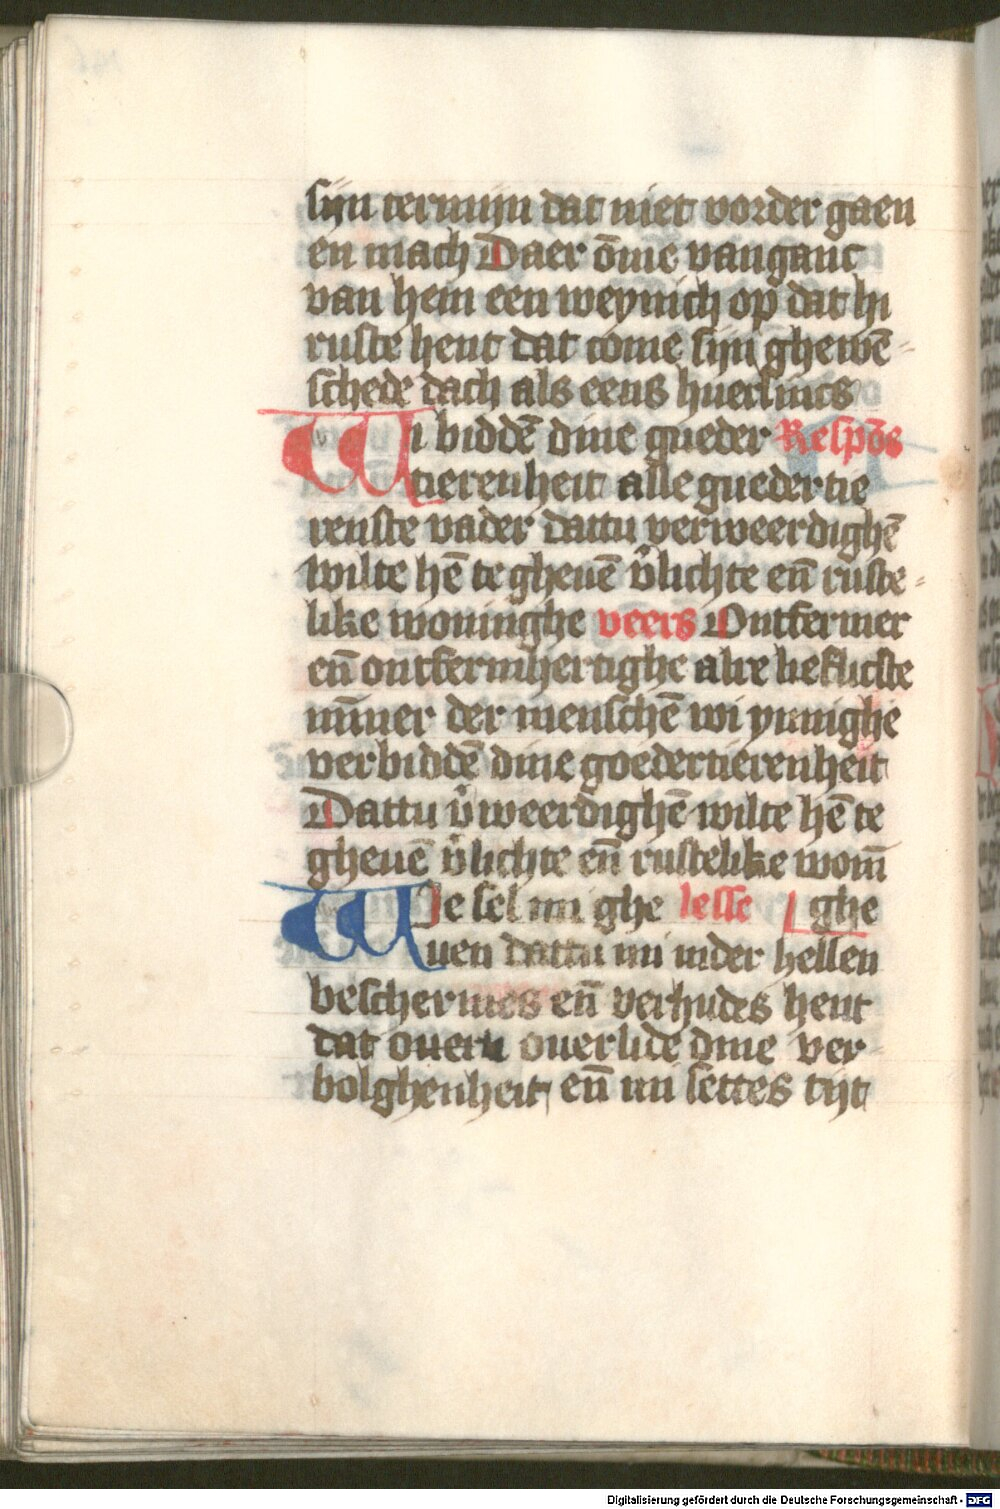 sijn termijn dat niet vorder gaen
en mach Daer o̅me vanganc
van hem een weynich op dat hi
ruste hent dat come sijn ghewe̅-
schede dach als eens huerlincs
Wi bidde̅ dine gueder Respo̅s
tierenheit alle guedertie
renste vader dattu verweerdighe̅
wilte he̅ te gheue̅ v̉lichte en̅ ruste-
like woninghe veers Ontfermer
en̅ ontfermhertighe alre liefliicste
mi̅ner der mensche̅ wi ynnighe
verbidde̅ dine goedertierenheit
Dattu v̉weerdighe̅ wilte he̅ te
gheue̅ v̉lichte en̅ rustelike woni̅
Wie sel mi ghe lesse ghe
uen dattu mi inder hellen
beschermes en̅ verhudes hent
dat ouer ouerlide dine ver
bolghenheit en̅ mi settes tijt
Digitalisierung gefördert durch die Deutsche Forschungsgemeinschaft - DFG